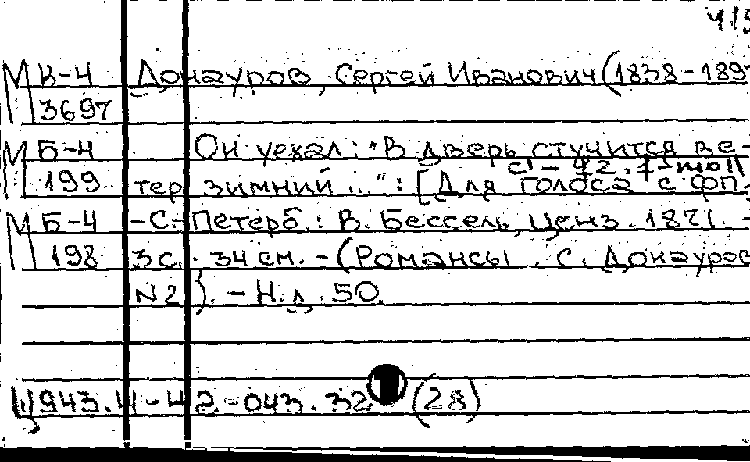 415
М К-4 Донауров, Сергей Иванович (1838-189
3697
М Б-4 Он уехал: "В дверь стучится ве-
199 тер зимний...": [Для голоса с фп.
М Б-4 -С.-Петерб.: В. Бессель, ценз. 1871. -
198 3 с. 34 см. - (Романсы. С. Донауров
N2). - Н.д. 50.
Ц943.4-42-043.32 (28)